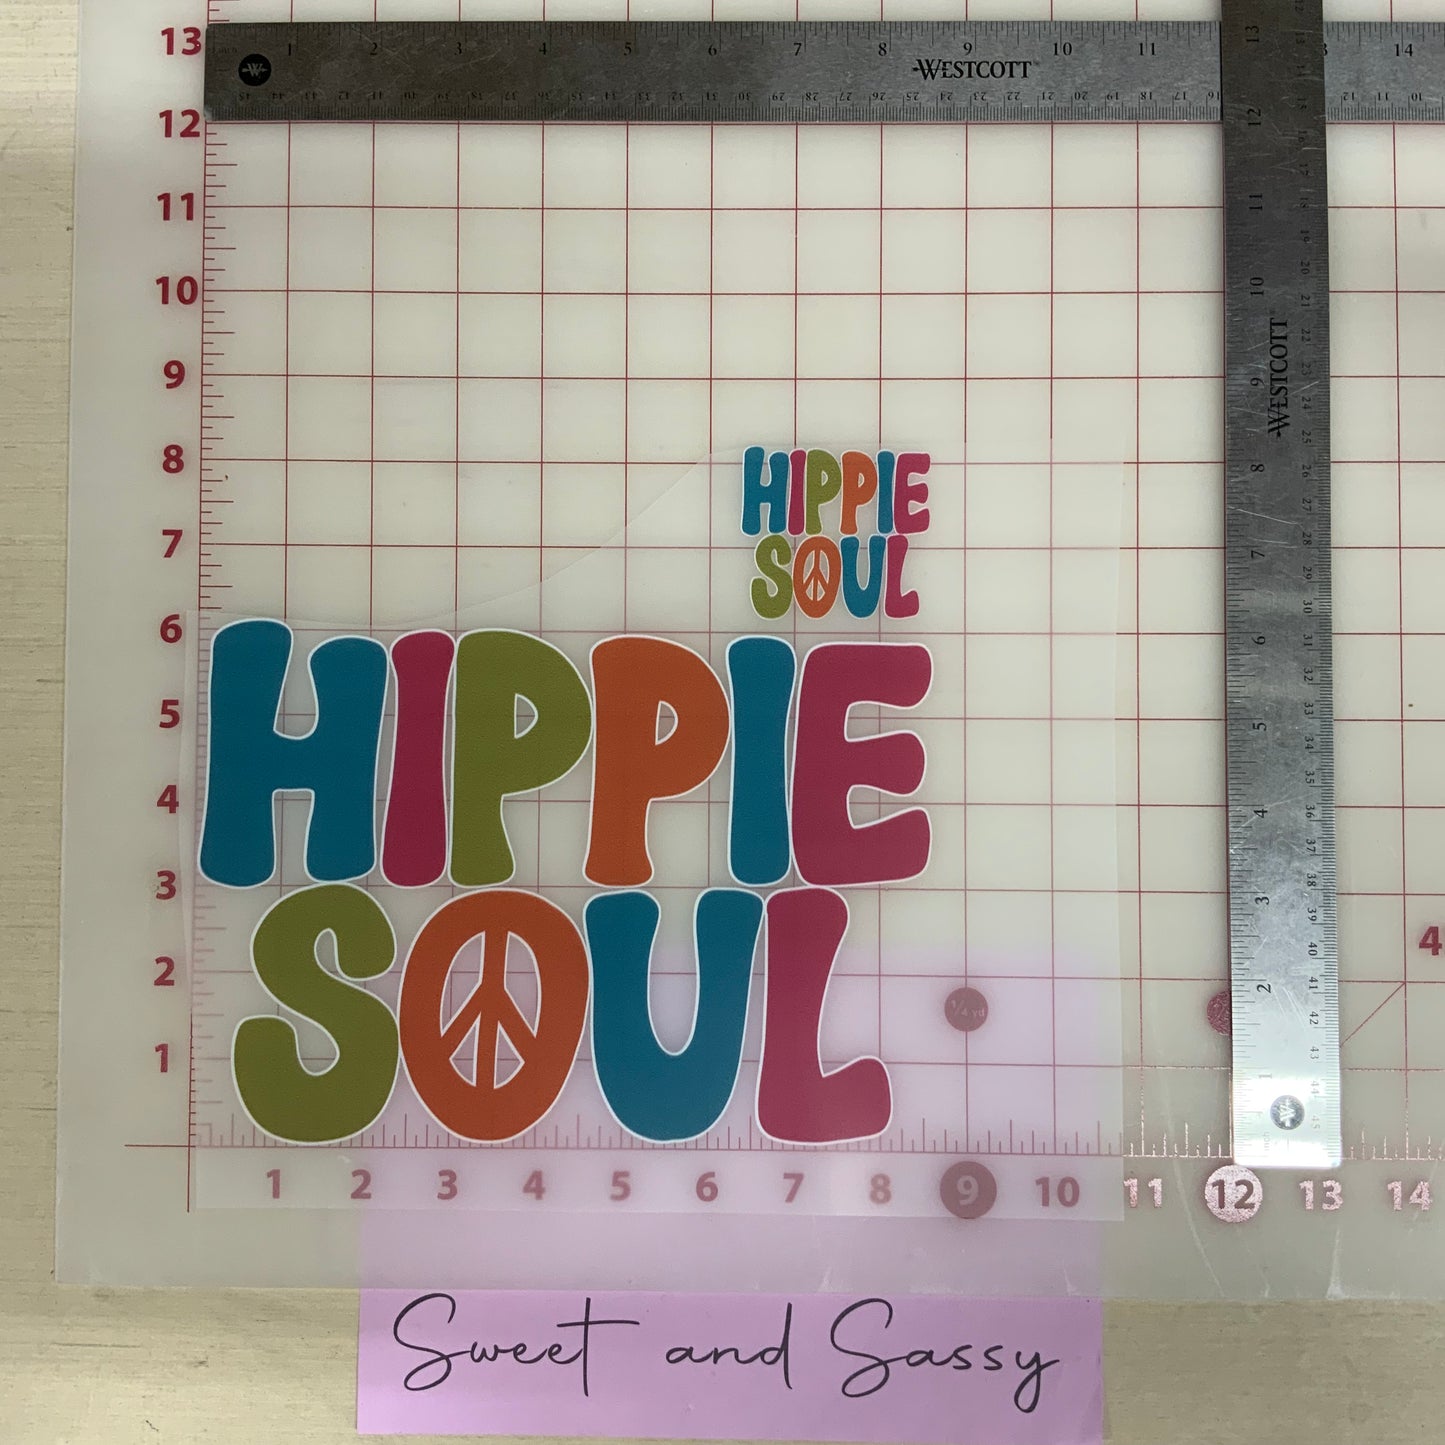 13
1 2 3 4 5 6 7 8 9 10 11 13 14
WESTCOTT
12
11
10
9
8
7
6
5
4
3
2
1
HIPPIE
SOUL
HIPPIE
SOUL
1/4 yd
1 2 3 4 5 6 7 8 9 10 11 12 13 14
13
12
11
10
9
8
7
6
5
4
3
2
1
WESTCOTT
4
Sweet and Sassy